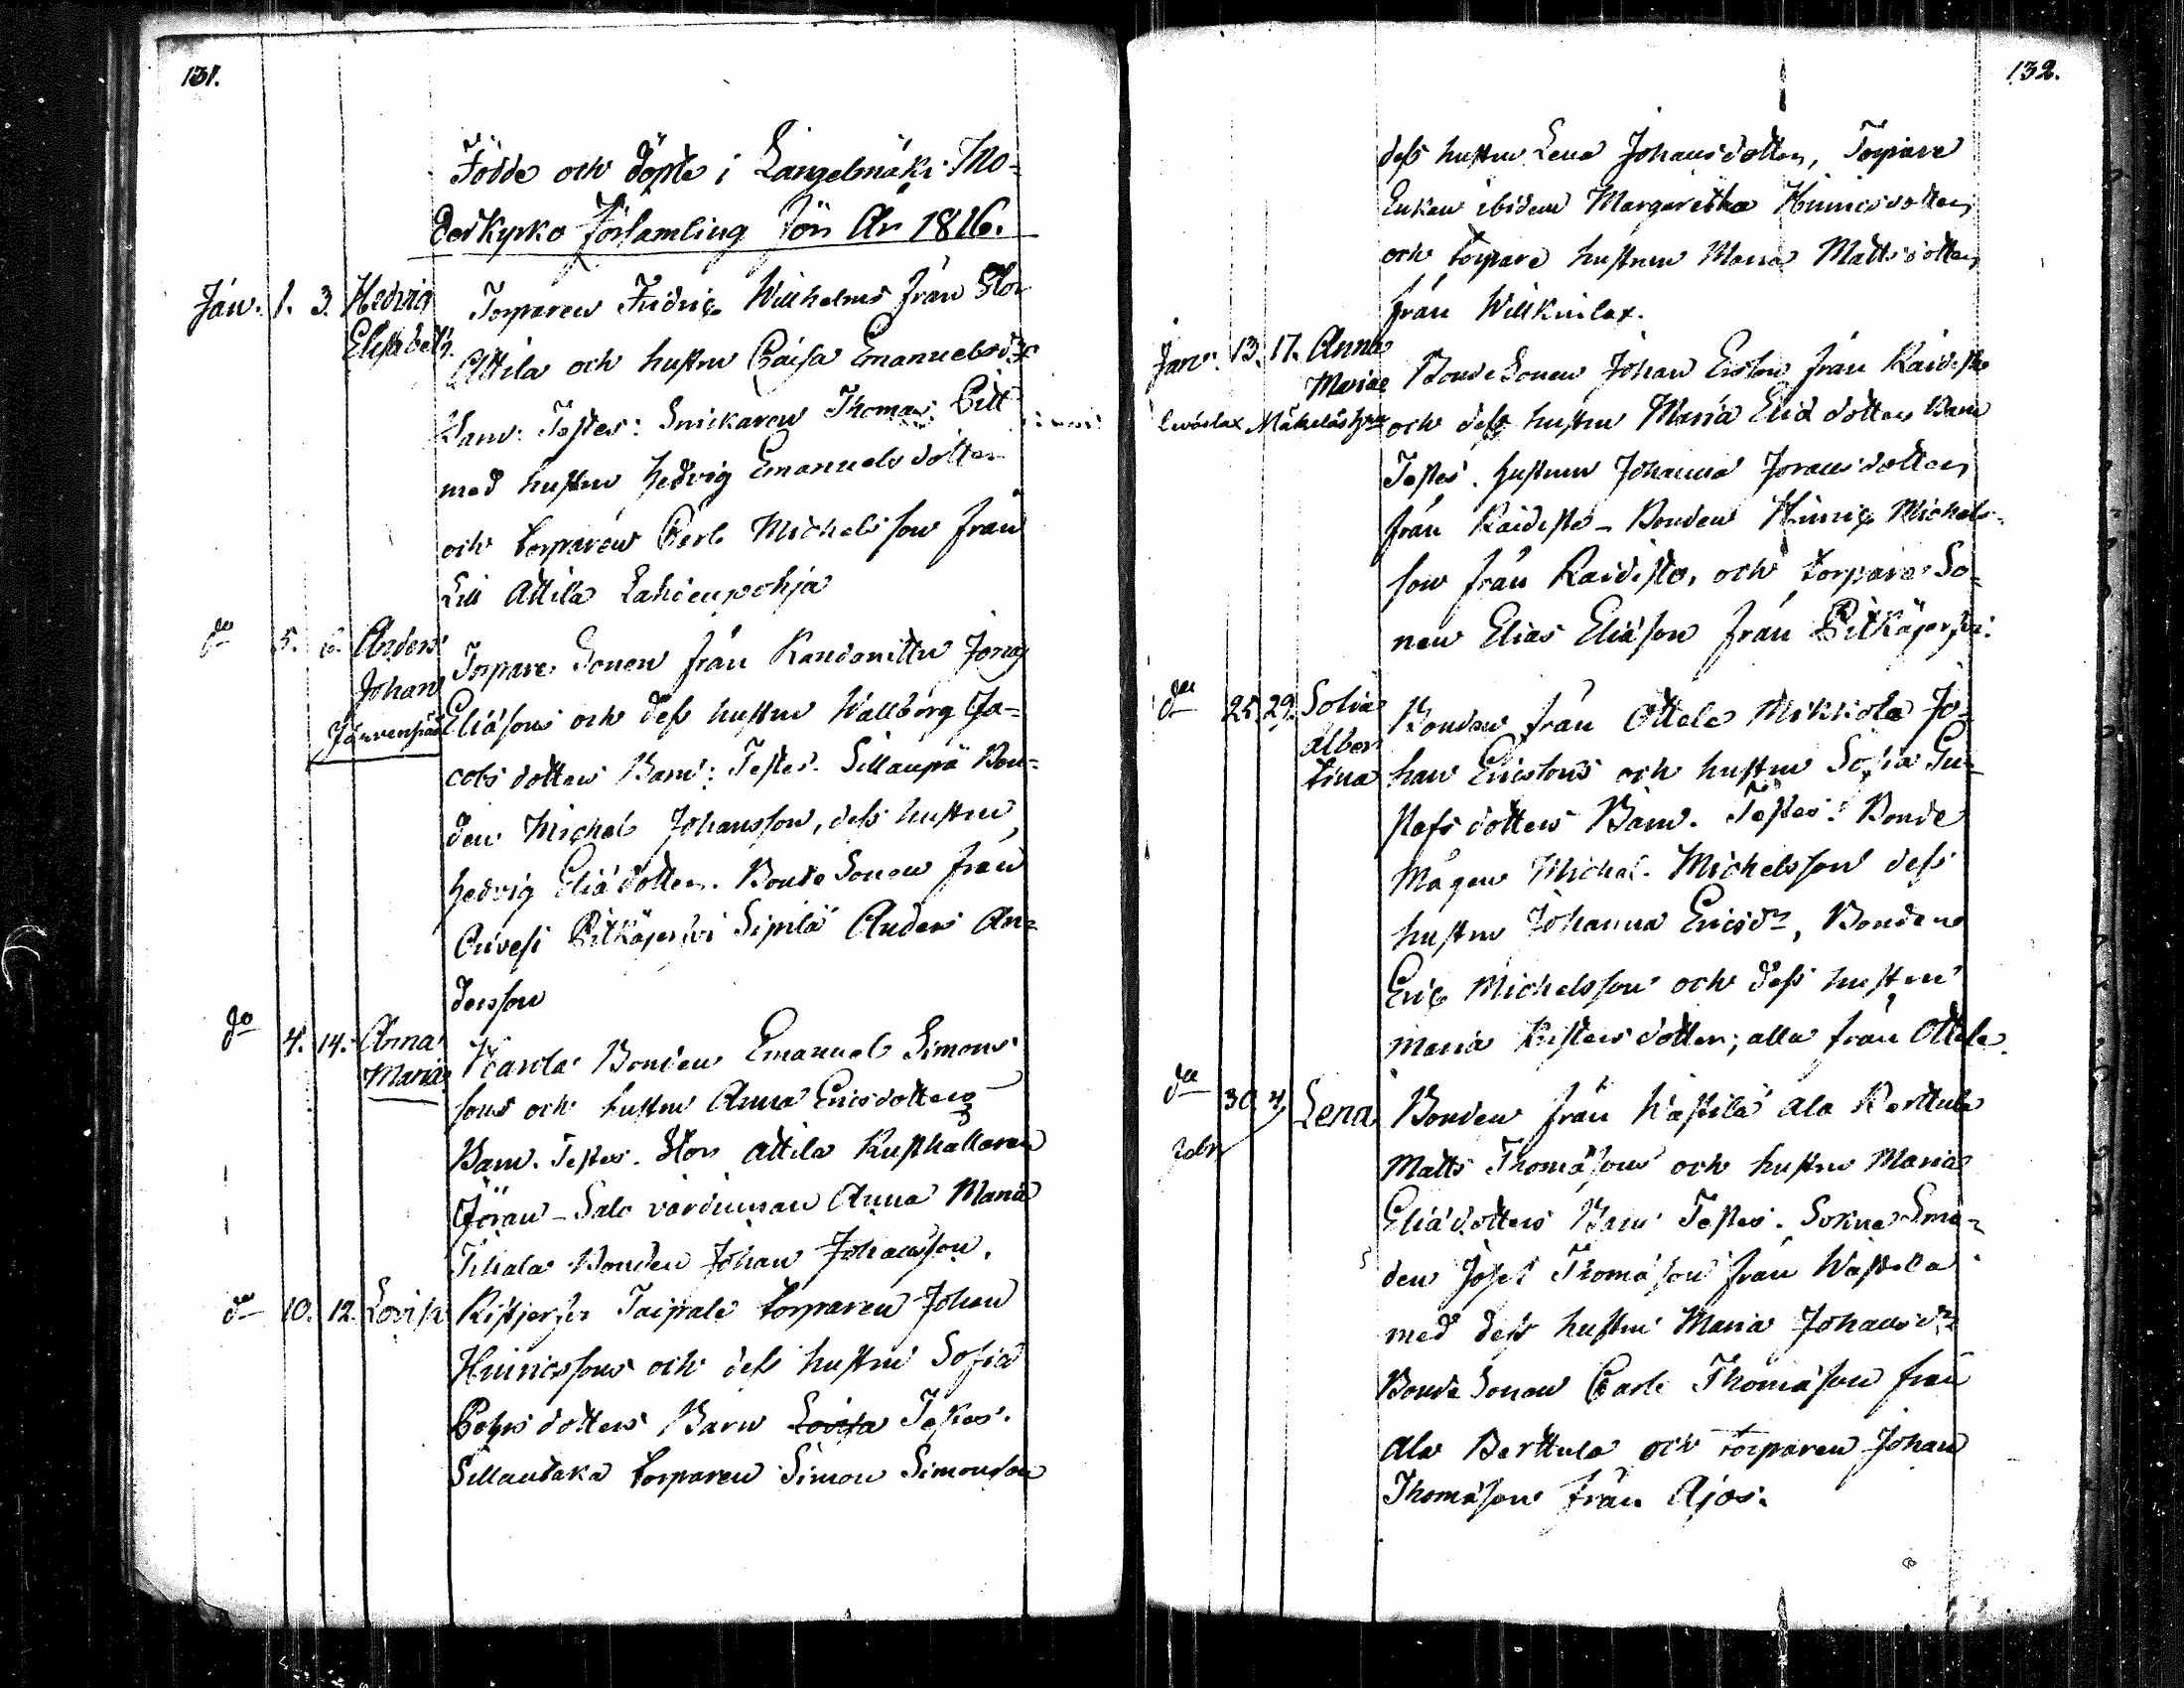 131.
Födde och döpte i Längelmäki Mo-
derkyrko Församling för År 1816.
Jan. 1. 3. Hedvig Elisabeth. Torparen Fridric Willhelms från Stor
Attila och hustru Caisa Emanuelsdrs
Barn: Testes: Snickaren Thomas
med hustru Hedvig Emanuels dotter
och torparen Carl Michelsson från
Lill Attila Lahdenpohja
do 5. 6. Anders Johan Järvenpää Torpare Sonen från Jonas
Eliæsons och dess hustru Wallborg Ja-
cobs dotters Barn: Testes. Sillanpä Bon-
den Michel Johansson, dess hustru,
Hedvig Eliædotter. Bonde Sonen från
Orivesi Pitkäjerfvi Sipilä Anders An-
dersson
do 4. 14. Anna Maria Bonden Emanuel Simons
sons och hustru Anna Ericsdotters
Barn. Testes. Stor Attila Rusthållaren
Jöran - Salo värdinnan Anna Maria
Tihala Bonden Johan Johansson.
do 10. 12. Lovisa Ristjerfvi Taipale torparen Johan
Hinricssons och dess hustru Sofia
Pehrs dotters Barn Lovisa Testes.
Sillantaka torparen Simon Simonson
132.
dess hustru Lena Johansdotter, Torpare
Enkan ibidem Margaretha Hinricsdotter
och torpare hustrun Maria Matts dotter
från Willkinlax.
Jan. 13. 17. Anna Maria Bonde Sonen Johan Ersson från Raidisto
Mäkelä och dess hustru Maria Eliæ dotters Barn
Testes. hustrun Johanna Joransdotter
från Raidisto - Bonden Hinric Michels-
son från Raidisto, och torpare So-
nen Elias Eliæson från Pitkäjerfvi.
do 25. 29. Sofia Albertina Bonden från Attila Mikkola Jo-
han Ericssons och hustru Sofia Gu-
stafs dotters Barn. Testes: Bonde
Mågen Michel Michelsson dess
hustru Johanna Ericsdr, Bonden
Eric Michelsson och dess hustru
Maria dotter; alla från Attila
do 30. 4. Febr Lena Bonden från Wästilä Ala Berttula
Matts Thomæsons och hustru Maria
Eliædotters Barn Testes. Sockne Sme-
den Josef Thomæson från Wästilä
med dess hustru Maria Johansdr
Bonde Sonen Carl Thomæson från
Ala Berttula och torparen Johan
Thomæson från Ajos.